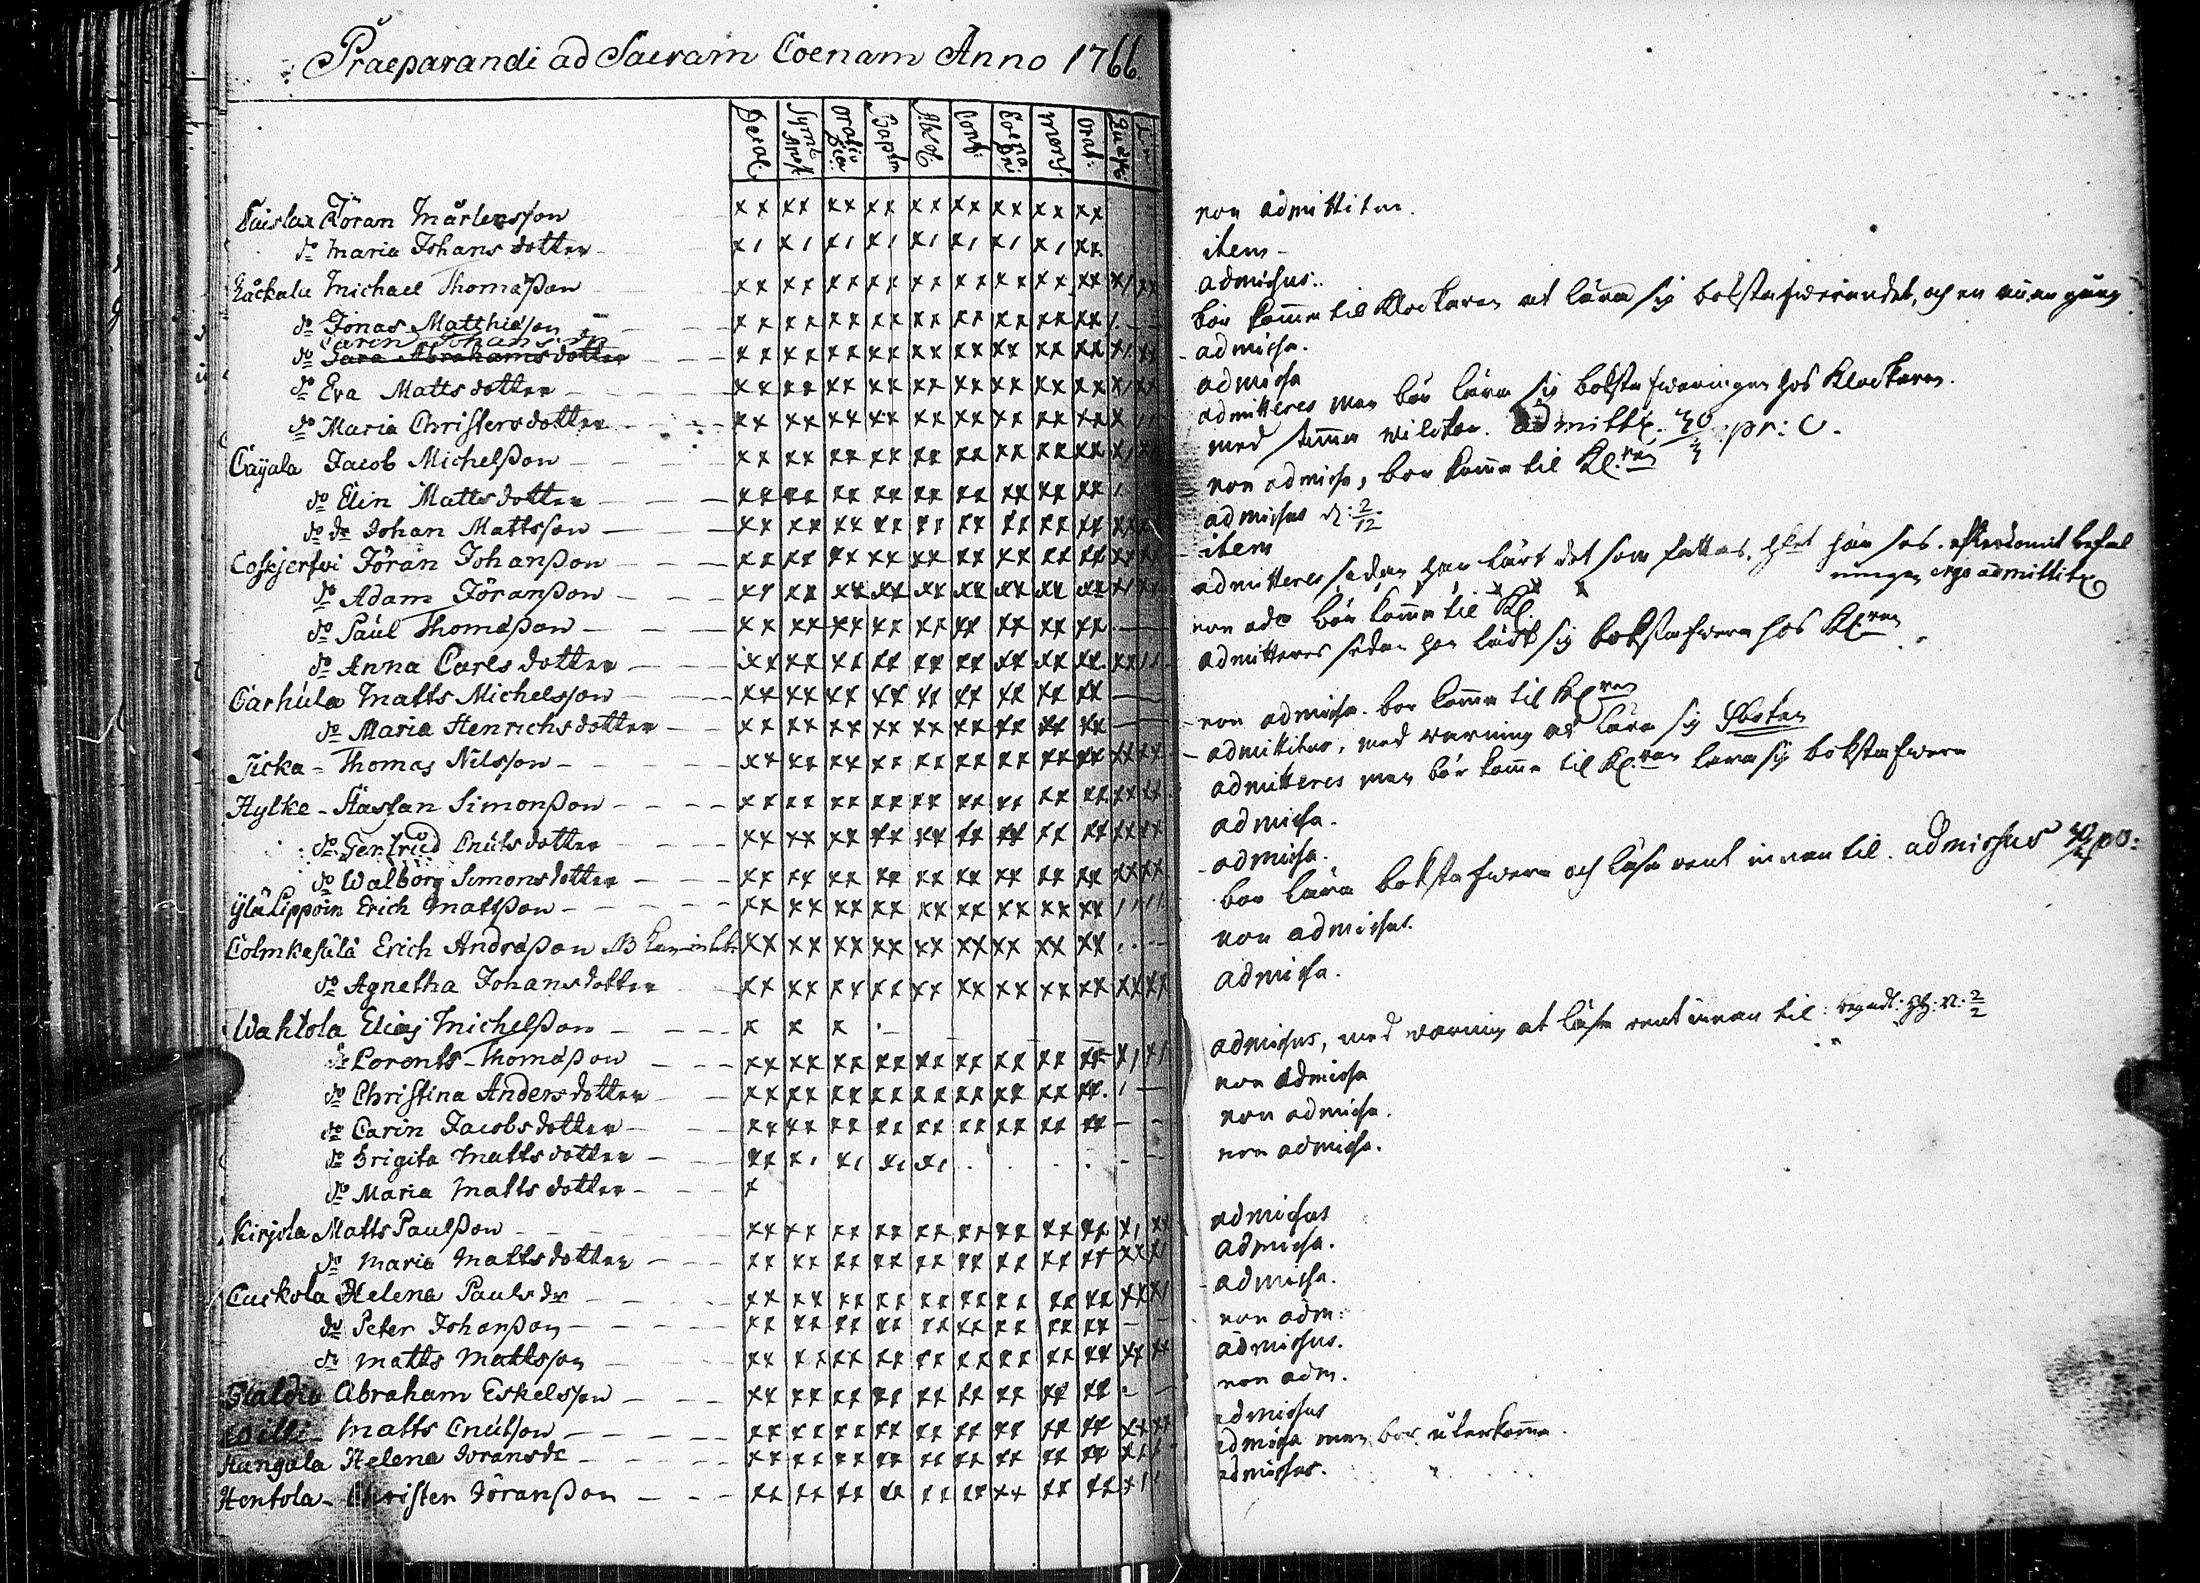 Praeparandi ad Sacram Coenam Anno 1766.
Decal: Symb: Apost Oratio Dom: Baptism Absol. Conf: Coena Dni mens. Orat:
Jöran Mårtensson xx xx xx xx xx xx xx xx xx non admittitur.
do Maria Johans dotter x/ x/ x/ x/ x/ x/ x/ x/ xx item
Michael Thomasson xx xx xx xx xx xx xx xx xx x/ xx admissus.
do Jonas Matthiæson xx xx xx xx xx xx xx xx xx /. bör komma til Klockaren at lära sig bokstafwerandet, och en annan gång
Carin Johans dr
do Sara Abrahamsdotter xx xx xx xx xx xx xx xx xx x/ xx admissa.
do Eva Matts dotter xx xx xx xx xx xx xx xx xx x/ xx admissa
do Maria Christersdotter xx xx xx xx xx xx xx xx xx x/ admitteres men bör lära sig bokstafweringen hos Klockaren.
Cäÿala Jacob Michelsson xx xx xx xx xx xx xx xx xx med samma wilckor. admittr. pr: C.
do Elin Matts dotter xx xx xx xx xx xx xx xx xx /. non admissa, bör komma til Kl:ren
do do Johan Mattsson xx xx xx xx xx xx xx xx xx xx admissus d: 2/12
Coskjerfvi Jöran Johansson xx xx xx xx xx xx xx xx xx xx item
do Adam Jöransson xx xx xx xx xx xx xx xx xx x/ xx admitteres sedan han lärt det som fattas. efterkomit befal
ningen ergo admittitr
do Paul Thomasson xx xx xx xx xx xx xx xx xx non adm bör komma til Kl.
do Anna Carls dotter xx xx xx xx xx xx xx xx xx xx // admitteres sedan hon lärdt sig bokstafwera hos Kl:ren
Carhula Matts Michelsson xx xx xx xx xx xx xx xx xx
do Maria Henrichsdotter xx xx xx xx xx xx xx xx xx non admissa. bör komma til Kl:ren
Ticka - Thomas Nilsson xx xx xx xx xx xx xx xx xx xx xx admittitur, med warning at lära sig
Hylke - Staffan Simonsson xx xx xx xx xx xx xx xx xx xx xx admitteres men bör komma til Kl:ren lära sig bokstafwera
do Gertrud Cnuts dotter xx xx xx xx xx xx xx xx xx xx xx admissa.
do Walborg Simonsdotter xx xx xx xx xx xx xx xx xx xx xx admissa.
Ylä Lippoin Erich Mattsson xx xx xx xx xx xx xx xx xx // // bör lära bokstafwera och läsa rent innan til. admissus
Colmkesälä Erich Andersson NB xx xx xx xx xx xx xx xx xx non admissus.
do Agnetha Johansdotter xx xx xx xx xx xx xx xx xx xx xx admissa.
Wahtola Elias Michelsson x x x
do Lorents Thomasson xx xx xx xx xx xx xx xx xx x/ x/ admissus, med warning at läsa rent innan til: 2/2
do Christina Anders dotter xx xx xx xx xx xx xx xx xx / non admissa
do Carin Jacobs dotter xx xx xx xx xx xx xx xx xx non admissa.
do Brigita Matts dotter xx x/ x/ x/ x/ non admissa.
do Maria Matts dotter x
Kirjola Matts Paulsson xx xx xx xx xx xx xx xx xx x/ xx admissus
do Maria Mattsdotter xx xx xx xx xx xx xx xx xx xx x/ admissa.
Cuckola Helena Pauls dr xx xx xx xx xx xx xx xx xx xx x/ admissa.
do Peter Johansson xx xx xx xx xx xx xx xx xx non adm:
do Matts Mattsson xx xx xx xx xx xx xx xx xx xx xx admissus.
Abraham Eskelsson xx xx xx xx xx xx xx xx xx non adm.
Matts Cnutsson xx xx xx xx xx xx xx xx xx xx xx admissus
Hangala Helena Joransdr xx xx xx xx xx xx xx xx xx admissa men bör återkomma.
Hentola - Christer Jöransson xx xx xx xx xx xx xx xx xx x/ admissus.